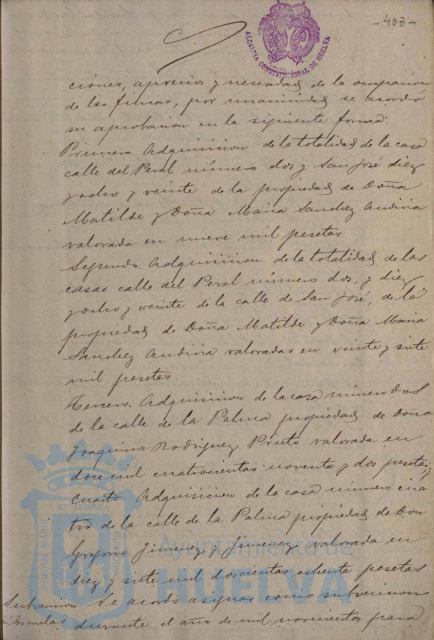 -403-
ALCALDIA CONSTITUCIONAL DE HUELVA
ciones, aprecios y necesidad de la ocupacion
de las fincas, por unanimidad se acordó
su aprobacion en la siguiente forma:
Primero. Adquisicion de la totalidad de la casa
calle del Peral número dos y San José diez
y ocho y veinte de la propiedad de Doña
Matilde y Doña Maria Sanchez Andivia
valorada en nueve mil pesetas
Segundo. Adquisicion de la totalidad de las
casas calle del Peral número dos, y diez
y ocho y veinte de la calle de San José, de la
propiedad de Doña Matilde y Doña Maria
Sanchez Andivia valoradas en veinte y siete
mil pesetas.
Tercero. Adquisicion de la casa número dos
de la calle de la Palma propiedad de Doña
Joaquina Rodriguez Prieto valorada en
doce mil cuatrocientas noventa y dos pesetas,
Cuarto. Adquisicion de la casa número cua
tro de la calle de la Palma propiedad de Don
Gregorio Jimenez y Jimenez, valorada en
diez y siete mil doscientas ochenta pesetas
Subvencion Se acordó asignar como subvencion
a Escuelas durante el año de mil novecientos para
Ayuntamiento de
HUELVA